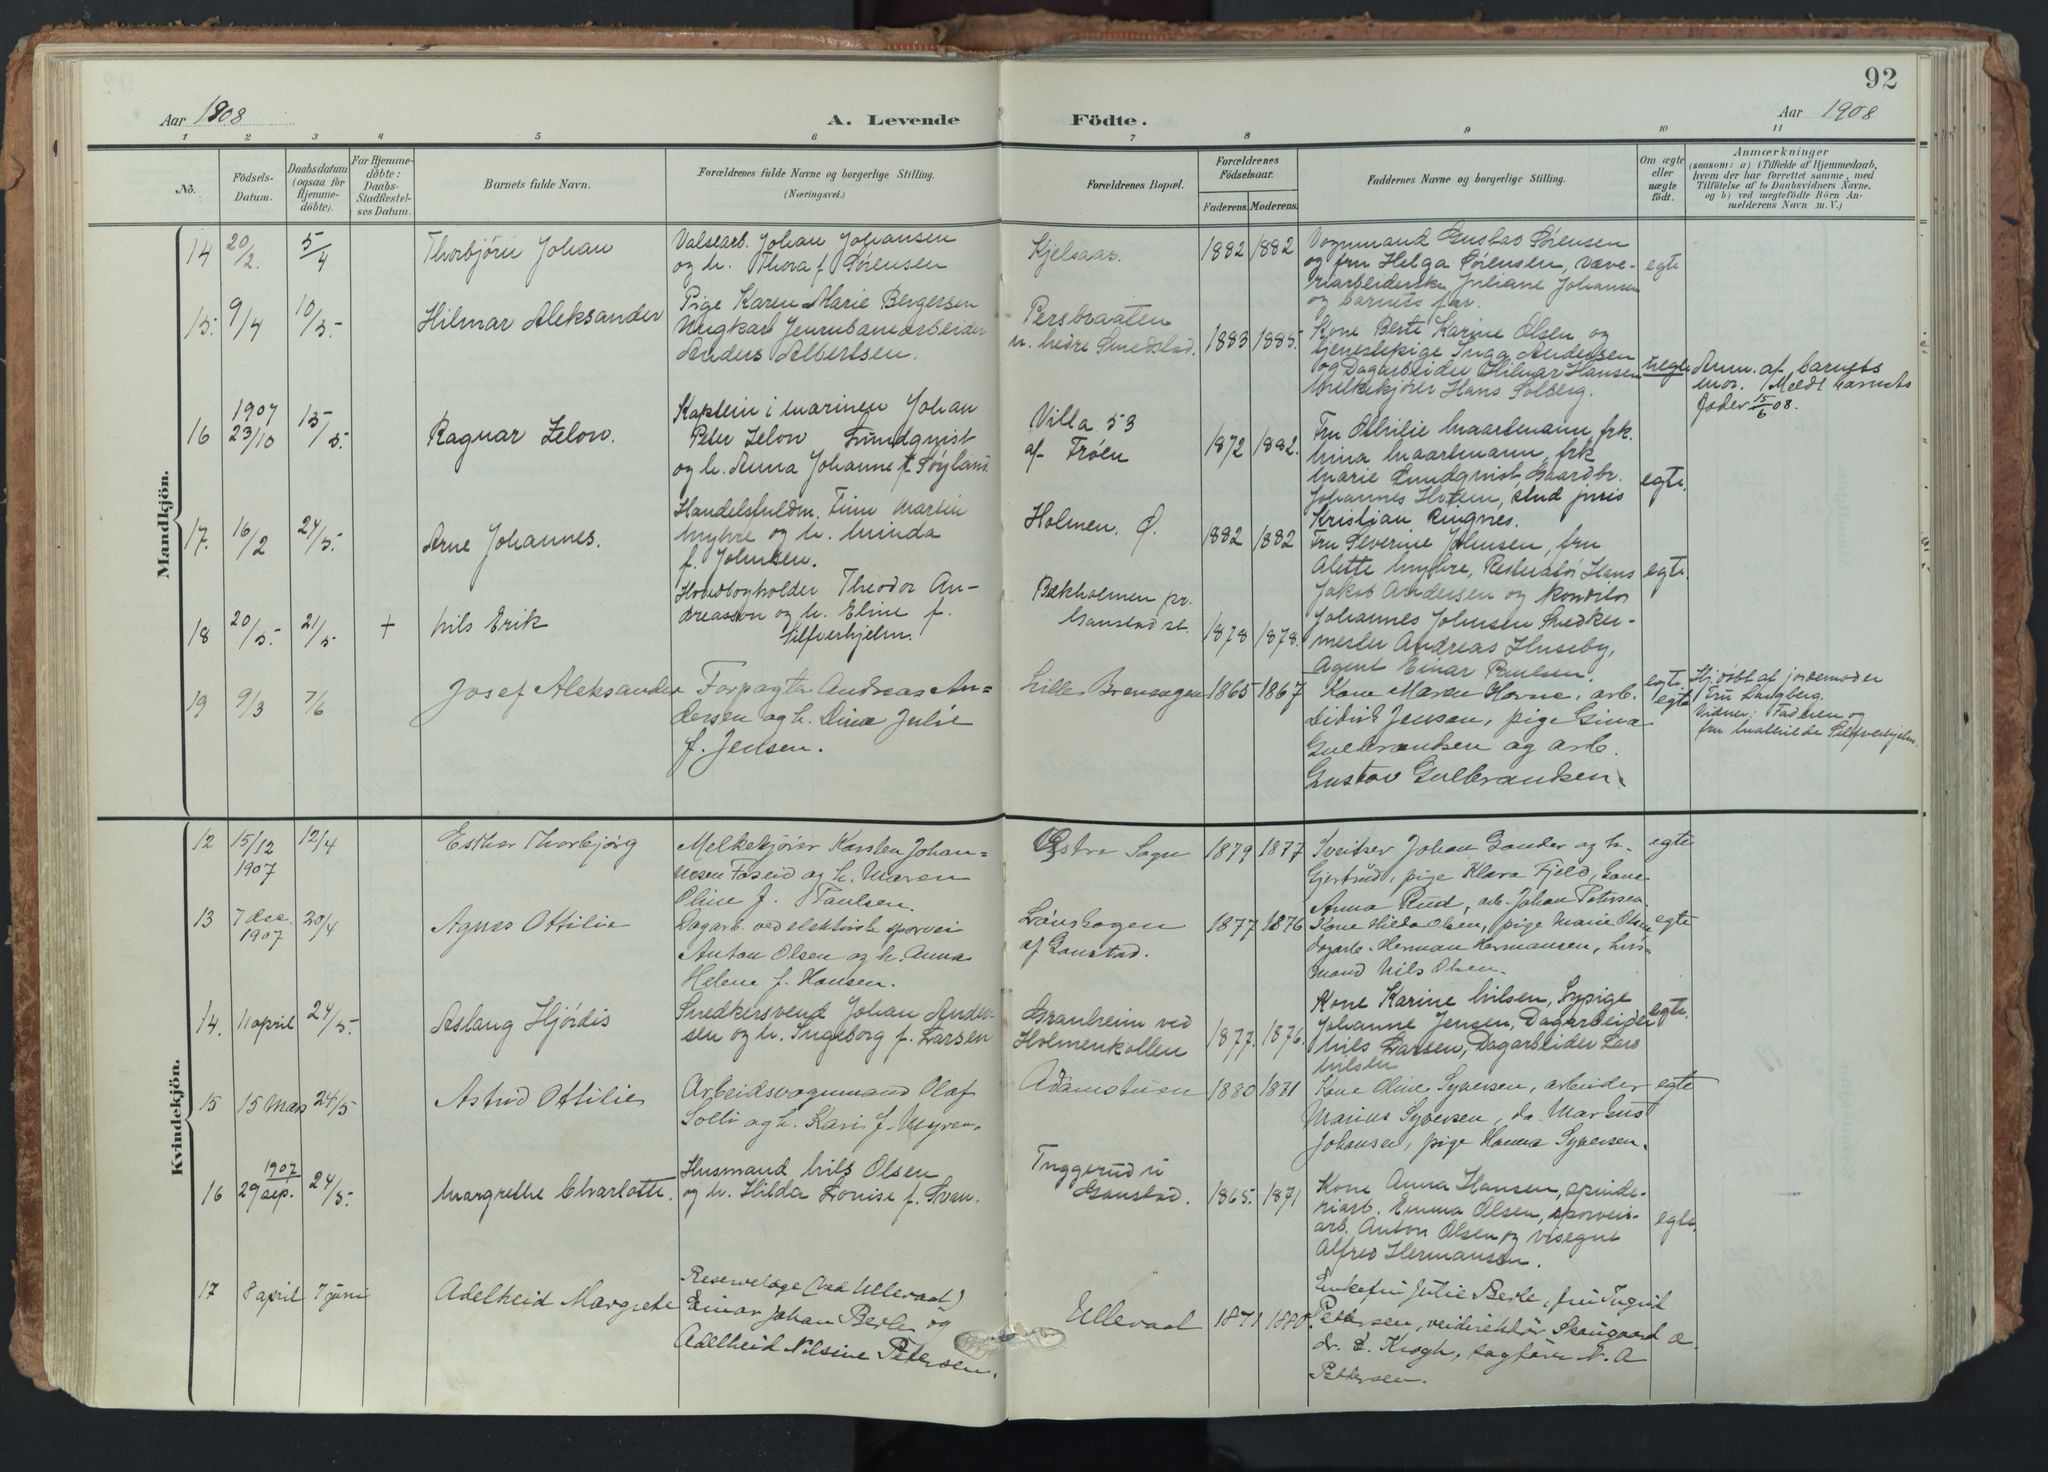 92
Aar 1908
A. Levende
Födte.
Aar 1908
1 2 3 4 5 6 7 8 9 10 11
No.
Födsels-
Datum.
Daabsdatum
(ogsaa for
Hjemme-
döbte).
For Hjemme-
döbte:
Daabs-
Stadfæstel-
ses Datum.
Barnets fulde Navn.
Forældrenes fulde Navne og borgerlige Stilling.
(Næringsvei.)
Forældrenes Bopæl.
Forældrenes
Födselsaar.
Faderens. Moderens.
Faddernes Navne og borgerlige Stilling.
Om ægte
eller
uægte
födt.
Anmærkninger
(saasom: a) i Tilfælde af Hjemmedaab,
hvem der har forrettet samme, med
Tilföielse af to Daabsvidners Navne,
og b) ved uægtefödte Börn An-
melderens Navn m. V.)
Mandkjön.
14 20/2. 5/4
Thorbjörn Johan
Valsearb. Johan Johansen
og h. Thora f. Sörensen
Kjelsaas.
1882 1882
Vognmand Gustav Sörensen
og fru Helga Sörensen, væve-
riarbeiderske Juliane Johansen
og barnets far.
egte
15. 9/4 10/5.
Hilmar Aleksander
Pige Karen Marie Bergersen
Ungkarl Jernbanearbeider
Anders Albertsen.
Persbraaten
u. nedre Smedstad.
1883 1885.
Kone Berte Karine Olsen og
tjenestepige Inga Andersen
og Dagarbeider Hilmar Hansen
Melkekjører Hans Solberg.
uegte
Anm. af barnets
mor. Meldt barnets
fader 15/6 08.
16 1907
23/10 15/5.
Ragnar Zelow.
Kaptein i marinen Johan
Peter Zelow Lundqvist
og h. Anna Johanne f. Söyland.
Villa 53
af Fröen
1872 1882.
Fru Othilie Maartmann, frk.
Mina Maartmann, frk
Marie Lundqvist, Gaardbr.
Johannes Holtem, stud juris
Kristian Ringnes.
egte.
17. 16/2 24/5.
Arne Johannes.
Handelsfuldm. Finn Martin
Myhre og h. Minda
f. Johnsen.
Holmen. Ø.
1882 1882
Fru Severine Johnsen, fru
Alette Myhre, Restauratör Hans
Jakob Andersen og konditor
Johannes Johnsen
egte.
18 20/5. 21/5 +
Nils Erik
Hovedbogholder Theodor An-
dreasson og h. Eline f.
Silfverhjelm.
Bekholmen pr.
Gaustad st.
1878 1878.
Snedker-
mester Andreas Huseby,
Agent Einar Paulsen.
egte
Hj. döbt af jordemoder
Fru Langberg.
Vidner: Faderen og
fru Mathilde Silfverhjelm.
19 9/3 7/6
Josef Aleksander
Forpagter Andreas An=
dersen og h. Dina Julie
f. Jensen.
Lille Brensagen
1865 1867
Kone Maren Horne, arb.
Didrik Jensen, pige Gina
Gulbrandsen og arb.
Gustav Gulbrandsen.
egte
Kvindekjön.
12 15/12 12/4
1907
Esther Thorbjörg
Melkekjörer Karsten Johan=
nesen Foseid og h. Maren
Oline f. Paulsen.
Østre Sogn
1879 1877
Sveitser Johan Gander og h.
Gjertrud, pige Klara Fjeld, Kone
Anna Rud, arb. Johan Petersen
egte
13 7 dec. 20/4
1907
Agnes Ottilie
Dagarb. ved elektrisk sporvei
Anton Olsen og h. Anna
Helene f. Hansen.
Lönskogen
af Gaustad.
1877 1876
Kone Hilda Olsen, pige Marie Olsen
dagarb. Herman Hermansen, hus-
mand Nils Olsen.
egte
14. 11 april 24/5.
Aslaug Hjördis
Snedkersvend Johan Ander-
sen og h. Ingeborg f. Larsen
Granheim ved
Holmenkollen
1877. 1876.
Kone Karine Nilsen, Sypige
Johanne Jensen, Dagarbeider
Nils Larsen, Dagarbeider Lars
Nilsen
egte.
15 15 Mars 24/5
Astrid Ottilie
Arbeidsvognmand Olaf
Solli og h. Kari f. Myren.
Adamstuen
1880 1871
Kone Oline Syversen, arbeider
Marius Syversen, do. Markus
Johansen, pige Hanna Syversen.
egte
16 1907
29 sep. 24/5.
Margrethe Charlotte.
Husmand Nils Olsen
og h. Hilda Louise f. Svan.
Tuggerud u
Gaustad.
1865. 1871
Kone Anna Hansen, spinde-
riarb. Emma Olsen, sporveis-
arb. Anton Olsen og visegut
Alfred Hermansen.
egte.
17 8 april 7 juni
Adelheid Margrete
Reservelæge (ved Ullevaal)
Einar Johan Berle og
Adelheid Nilsine Petersen.
Ullevaal
1871 1880
Enkefru Julie Berle, fru Ingrid
Pettersen, veidirektör Skougaard
dr. L. Krogh, sagförer N. A
Pettersen.
æ.